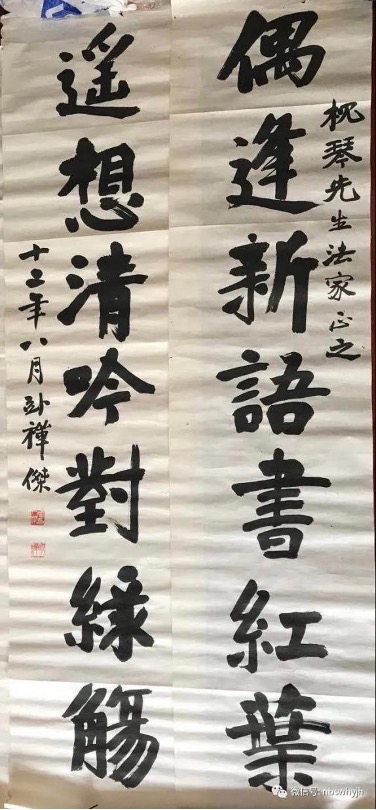 枕琴先生法家正之
偶逢新語書紅葉
遥想清吟對綠觴
十二年八月卧禪傑
微信号: nbswhyjh